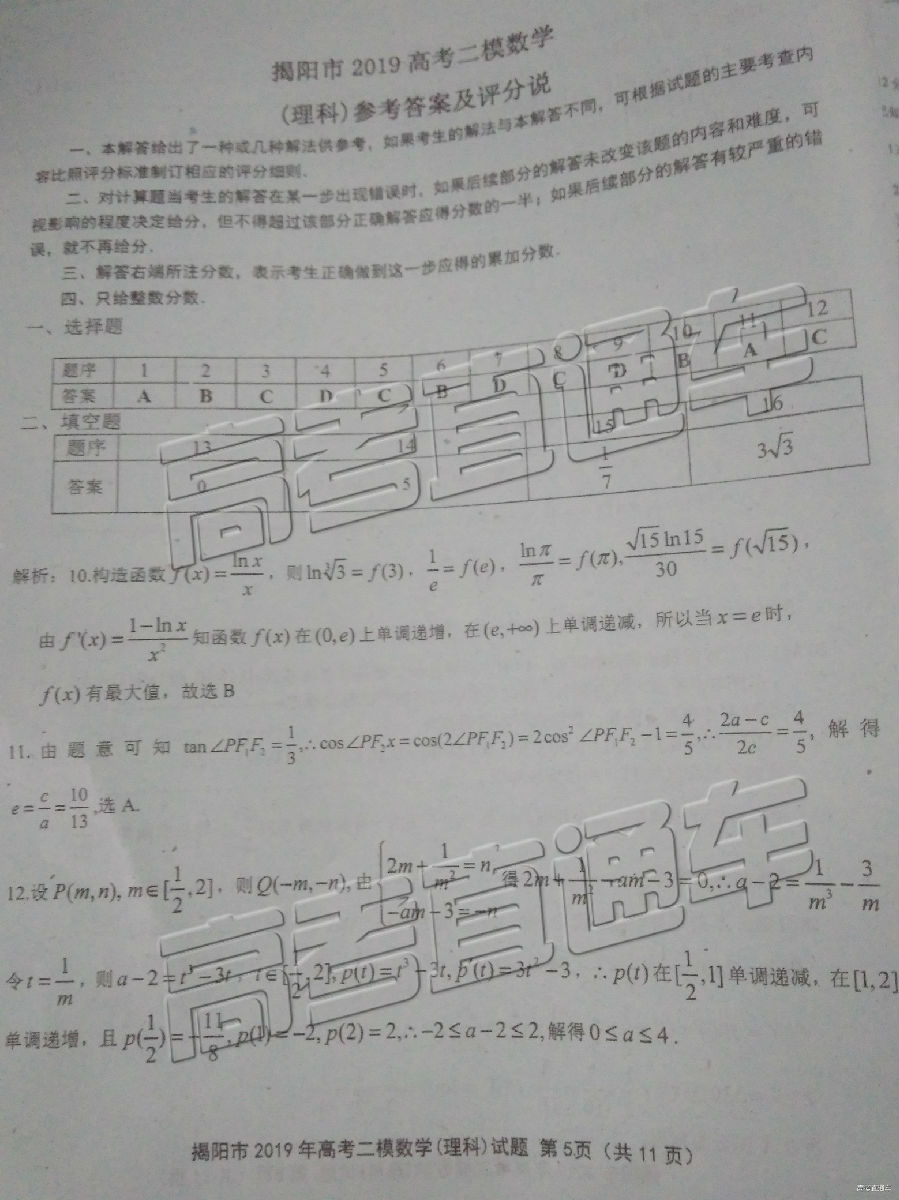 揭阳市 2019 高考二模数学
(理科)参考答案及评分说
一、本解答给出了一种或几种解法供参考，如果考生的解法与本解答不同，可根据试题的主要考查内
容比照评分标准制订相应的评分细则．
二、对计算题当考生的解答在某一步出现错误时，如果后续部分的解答未改变该题的内容和难度，可
视影响的程度决定给分，但不得超过该部分正确解答应得分数的一半；如果后续部分的解答有较严重的错
误，就不再给分．
三、解答右端所注分数，表示考生正确做到这一步应得的累加分数．
四、只给整数分数．
一、选择题
题序 1 2 3 4 5 6 7 8 9 10 11 12
答案 A B C D C B D C D B A C
二、填空题
题序 13 14 15 16
答案 0 5 1/7 3√3
解析：10.构造函数 f(x) = ln x / x，则 ln ∛3 = f(3)，1/e = f(e)，ln π / π = f(π), √15 ln15 / 30 = f(√15)，
由 f'(x) = (1−ln x) / x² 知函数 f(x) 在 (0,e) 上单调递增，在 (e,+∞) 上单调递减，所以当 x = e 时，
f(x) 有最大值，故选 B
11. 由题意可知 tan∠PF₁F₂ = 1/3,∴cos∠PF₂x = cos(2∠PF₁F₂) = 2cos² ∠PF₁F₂ −1 = 4/5,∴(2a−c)/2c = 4/5, 解得
e = c/a = 10/13 ,选 A.
12.设 P(m,n), m∈[1/2,2]，则 Q(−m,−n), 由 {2m + 1/m² = n, −am−3 = −n 得 2m + 1/m² − am − 3 = 0,∴a−2 = 1/m³ − 3/m
令 t = 1/m，则 a−2 = t³−3t，t∈[1/2,2], p(t) = t³−3t, p'(t) = 3t²−3，∴p(t) 在 [1/2,1] 单调递减，在 [1,2]
单调递增，且 p(1/2) = −11/8, p(1) = −2, p(2) = 2,∴−2 ≤ a−2 ≤ 2, 解得 0 ≤ a ≤ 4．
揭阳市 2019 年高考二模数学(理科)试题 第 5页（共 11 页）
高考直通车
高考直通车